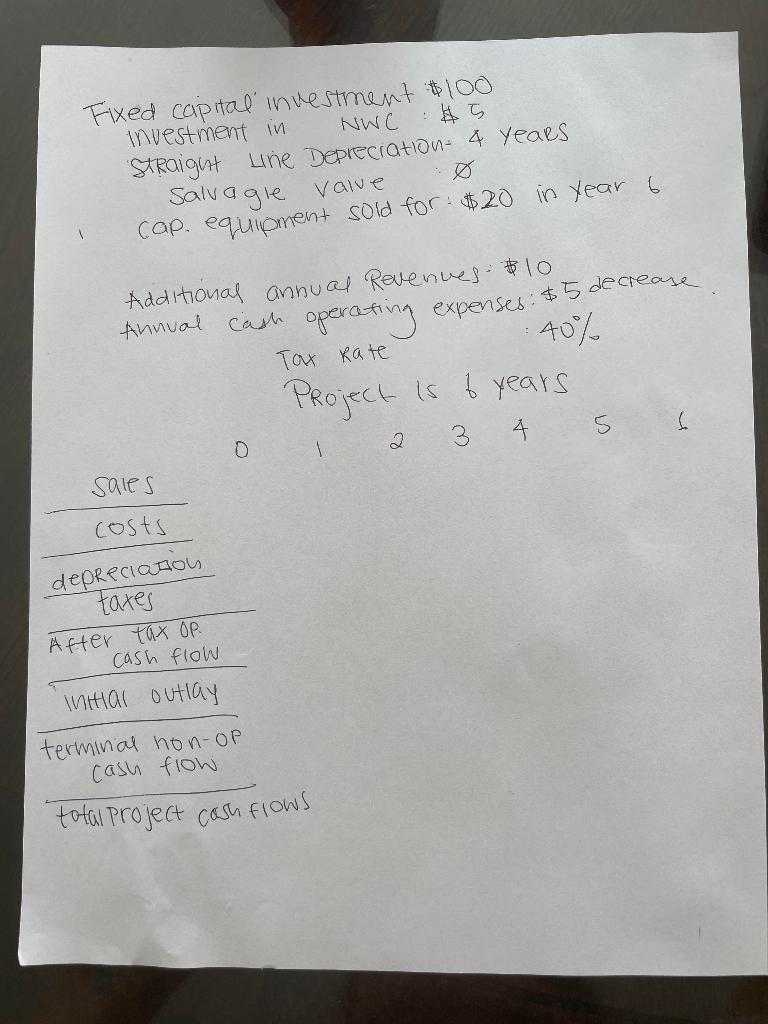 Fixed capital investment : $100
investment in NWC : $5
Straight Line Depreciation- 4 years
Salvagle valve : Ø
Cap. equipment sold for : $20 in year 6
Additional annual Revenues : $10
Annual cash operating expenses : $5 decrease.
Tax Rate : 40%
Project is 6 years
0 1 2 3 4 5 6
sales
costs
depreciation
taxes
After tax op.
cash flow
initial outlay
terminal non-op
cash flow
total project cash flows